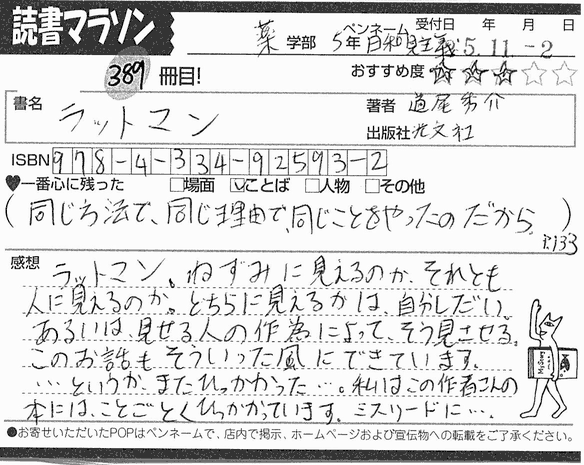 読書マラソン
ペンネーム 受付日 年 月 日
薬 学部 5年 日和見主義 5.11-2
389 冊目!
おすすめ度 ★★★☆☆
書名 ラットマン
著者 道尾秀介
出版社 光文社
ISBN 978-4-334-92593-2
♥一番心に残った □場面 ☑ことば □人物 □その他
(同じ方法で、同じ理由で、同じことをやったのだから。)
P.133
感想
ラットマン。ねずみに見えるのか、それとも
人に見えるのか。どちらに見えるかは、自分しだい。
あるいは、見せる人の作為によって、そう見させる。
このお話もそういった風にできています。
…というか、またひっかかった…。私はこの作者さんの
本には、ことごとくひっかかっています。ミスリードに…。
●お寄せいただいたPOPはペンネームで、店内で掲示、ホームページおよび宣伝物への転載をご了承ください。